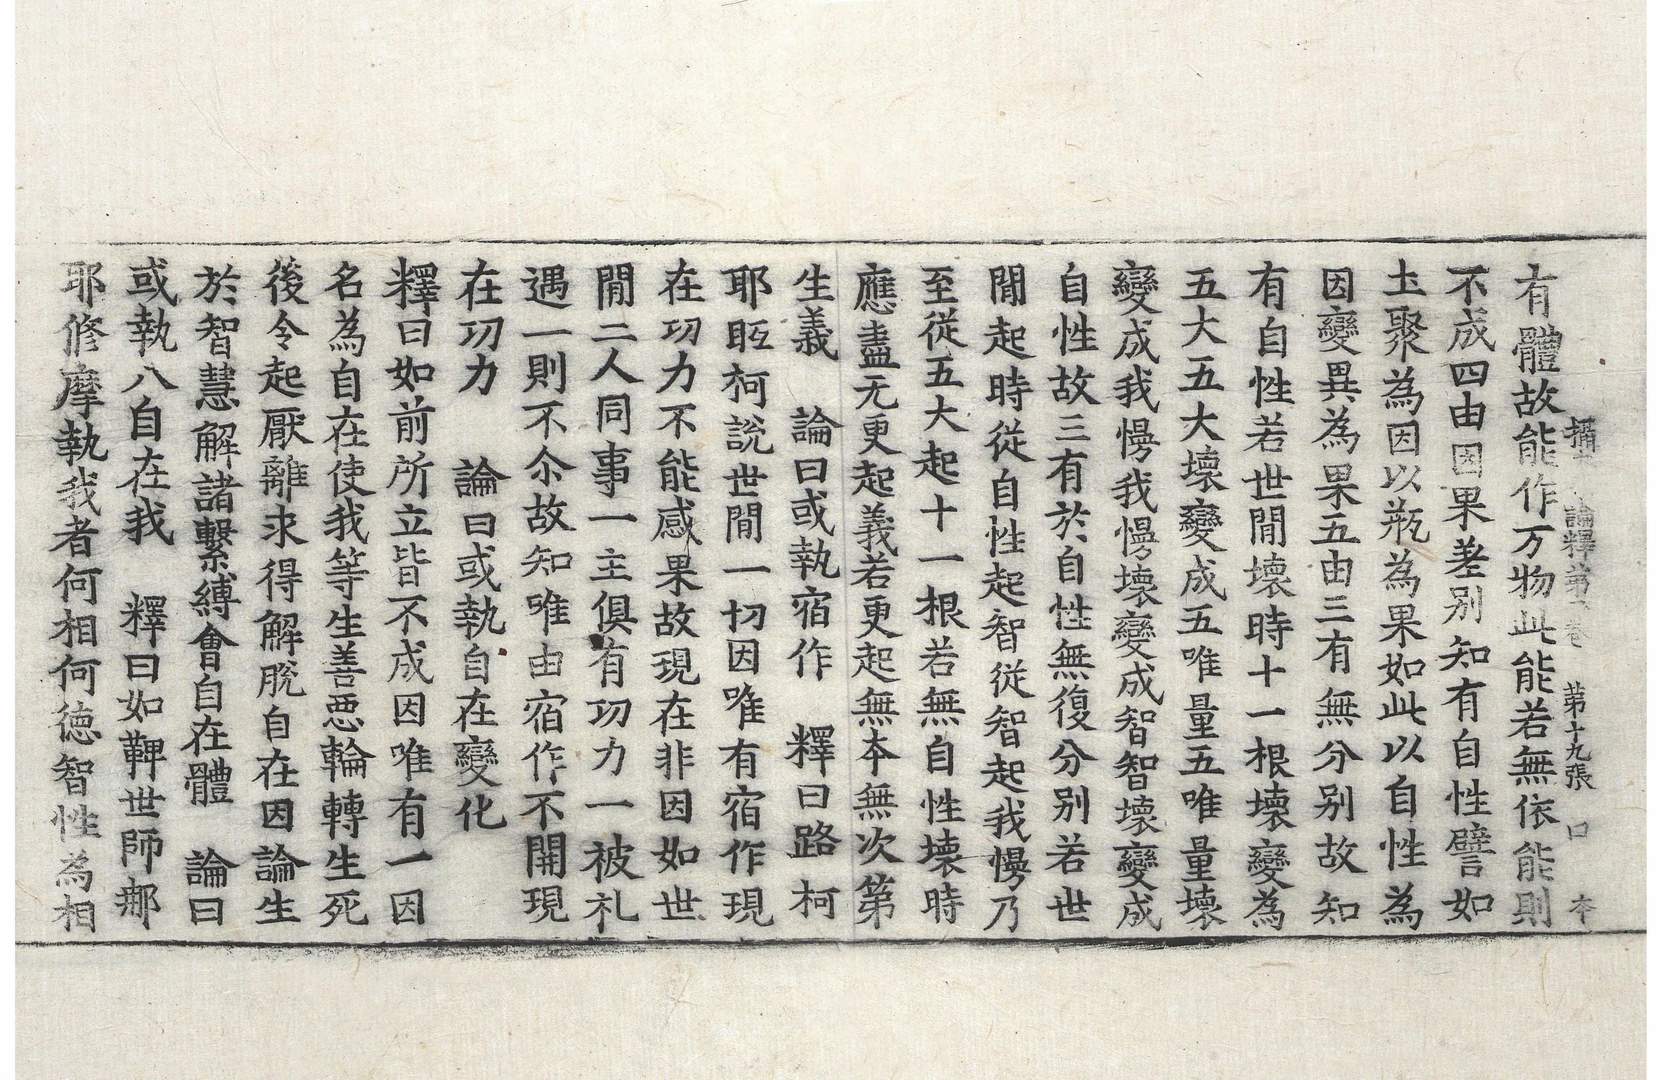 攝　論釋第　卷　第十九張　口　本
有體故能作万物此能若無依能則
不成四由因果差別知有自性譬如
土聚為因以瓶為果如此以自性為
因變異為果五由三有無分別故知
有自性若世間壞時十一根壞變為
五大五大壞變成五唯量五唯量壞
變成我慢我慢壞變成智智壞變成
自性故三有於自性無復分別若世
間起時從自性起智從智起我慢乃
至從五大起十一根若無自性壞時
應盡无更起義若更起無本無次第
生義　論曰或執宿作　釋曰路柯
耶眂柯說世間一切因唯有宿作現
在功力不能感果故現在非因如世
間二人同事一主俱有功力一被礼
遇一則不尒故知唯由宿作不開現
在功力　論曰或執自在變化
釋曰如前所立皆不成因唯有一因
名為自在使我等生善惡輪轉生死
後令起厭離求得解脫自在因論生
於智慧解諸繫縛會自在體　論曰
或執八自在我　釋曰如鞞世師那
耶修摩執我者何相何德智性為相